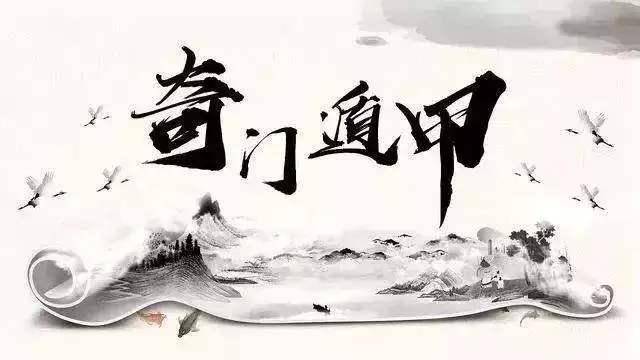 奇门遁甲